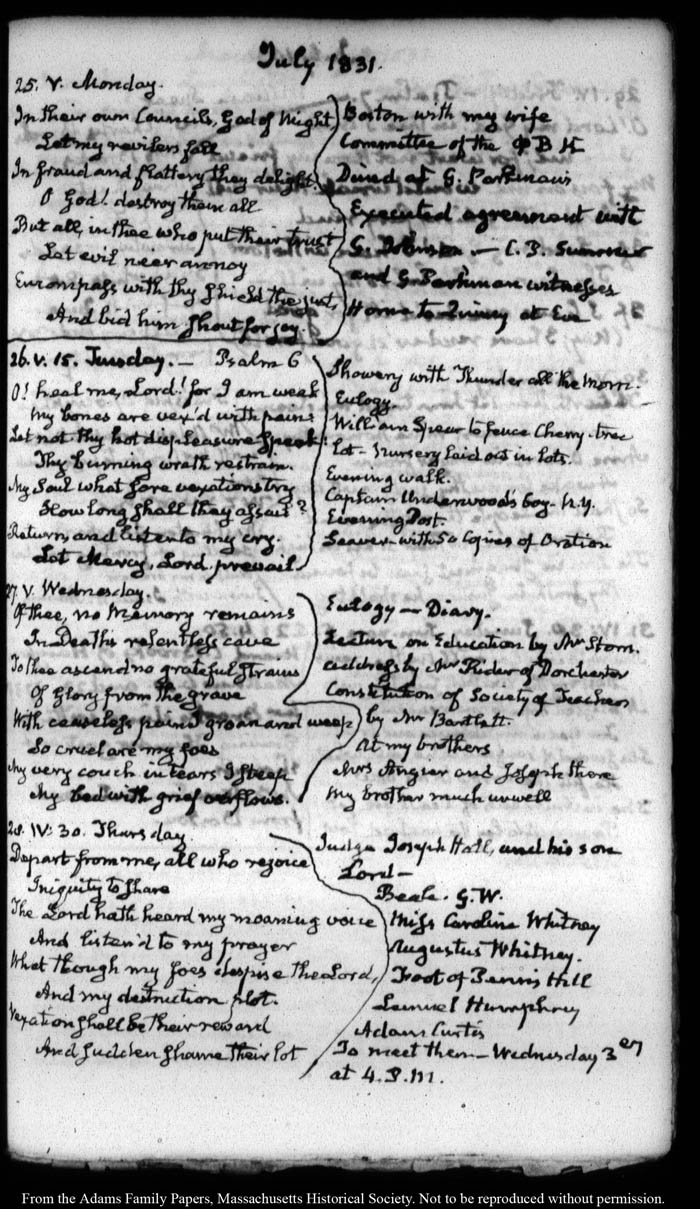 July 1831.
25. V. Monday.
In their own Councils, God of Might
Let my revilers fall
In fraud and flattery they delight.
O God! destroy them all
But all, in thee who put their trust
Let evil ne'er annoy
Encompass with thy shield the just,
And bid him shout for joy.
Boston with my wife
Committee of the ΦBK
Dined at G. Parkman's
Executed agreement with
G. Robinson — C. P. Sumner
and G. Parkman witnesses
Home to Quincy at Eve
26. V. 15. Tuesday. — Psalm 6
O! heal me, Lord! for I am weak
My bones are vex'd with pain:
Let not thy hot displeasure speak:
Thy burning wrath restrain.
My Soul what sore vexations try
How long shall they assail?
Return, and listen to my cry.
Let Mercy, Lord, prevail
Showery with Thunder all the Morn.
Eulogy—
William Spear to fence Cherry-tree
lot — Nursery laid out in lots.
Evening walk.
Captain Underwood's boy— N.Y.
Evening Post.
Seaver—with 50 Copies of Oration
27. V. Wednesday.
Of thee, no Memory remains
In Death's relentless cave
To thee ascend no grateful strains
Of Glory from the grave
With ceaseless pain I groan and weep
So cruel are my foes
My very couch in tears I steep
My bed with grief o'erflows.
Eulogy — Diary.
Lecture on Education by Mr Storn.
address by Mr Rider of Dorchester
Constitution of Society of Teachers
by Mr Bartlett.
At my brothers
Mrs Angier and Joseph there
My brother much unwell
28. IV: 30. Thursday.
Depart from me, all who rejoice
Iniquity to share
The Lord hath heard my moaning voice
And listen'd to my prayer
What though my foes despise the Lord,
And my destruction plot.
Vexation shall be their reward
And sudden shame their lot
Judge Joseph Hall, and his son
Lord—
Beale. G.W.
Miss Caroline Whitney
Augustus Whitney.
Foot of Penn's Hill
Lemuel Humphrey
Adam Curtis
To meet them — Wednesday 3
at 4. P.M.
From the Adams Family Papers, Massachusetts Historical Society. Not to be reproduced without permission.